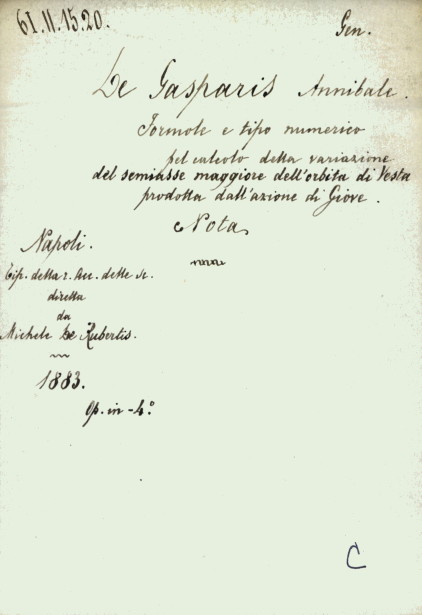 61.11.15.20.
Gen.
De Gasparis Annibale.
Formole e tipo numerico
pel calcolo della variazione
del semiasse maggiore dell'orbita di Vesta
prodotta dall'azione di Giove.
Nota
Napoli.
Tip. della r. Acc. delle sc.
diretta
da
Michele De Rubertis.
1883.
Op. in-4.°
C